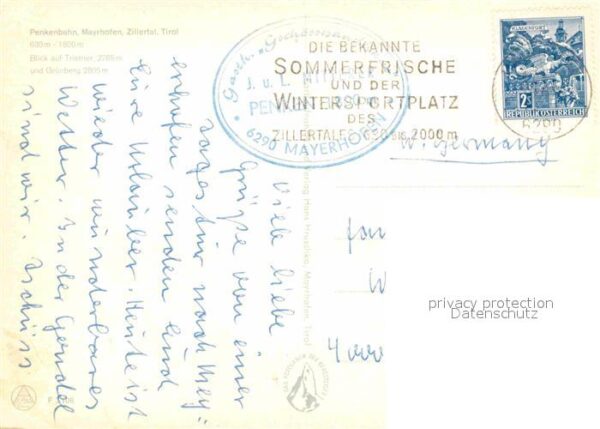 Penkenbahn, Mayrhofen, Zillertal, Tirol
600 m - 1800 m
Blick auf Tristner, 2765 m
und Grünberg 2865 m
DIE BEKANNTE
SOMMERFRISCHE
UND DER
WINTERSPORTPLATZ
DES
ZILLERTALES 630 BIS 2000 m
J. u. L.
6290 MAYRHOFEN
KLAGENFURT
2
REPUBLIK ÖSTERREICH
6290
W. Germany
Viele liebe
Grüße von einer
Tagestur nach Mey"
erhofen senden Euch
Eure Urlauber. Heute ist
wieder wunderbares
Wetter. In der Gondel
sind wir. Tschüss
Fam
W
4000
privacy protection
Datenschutz